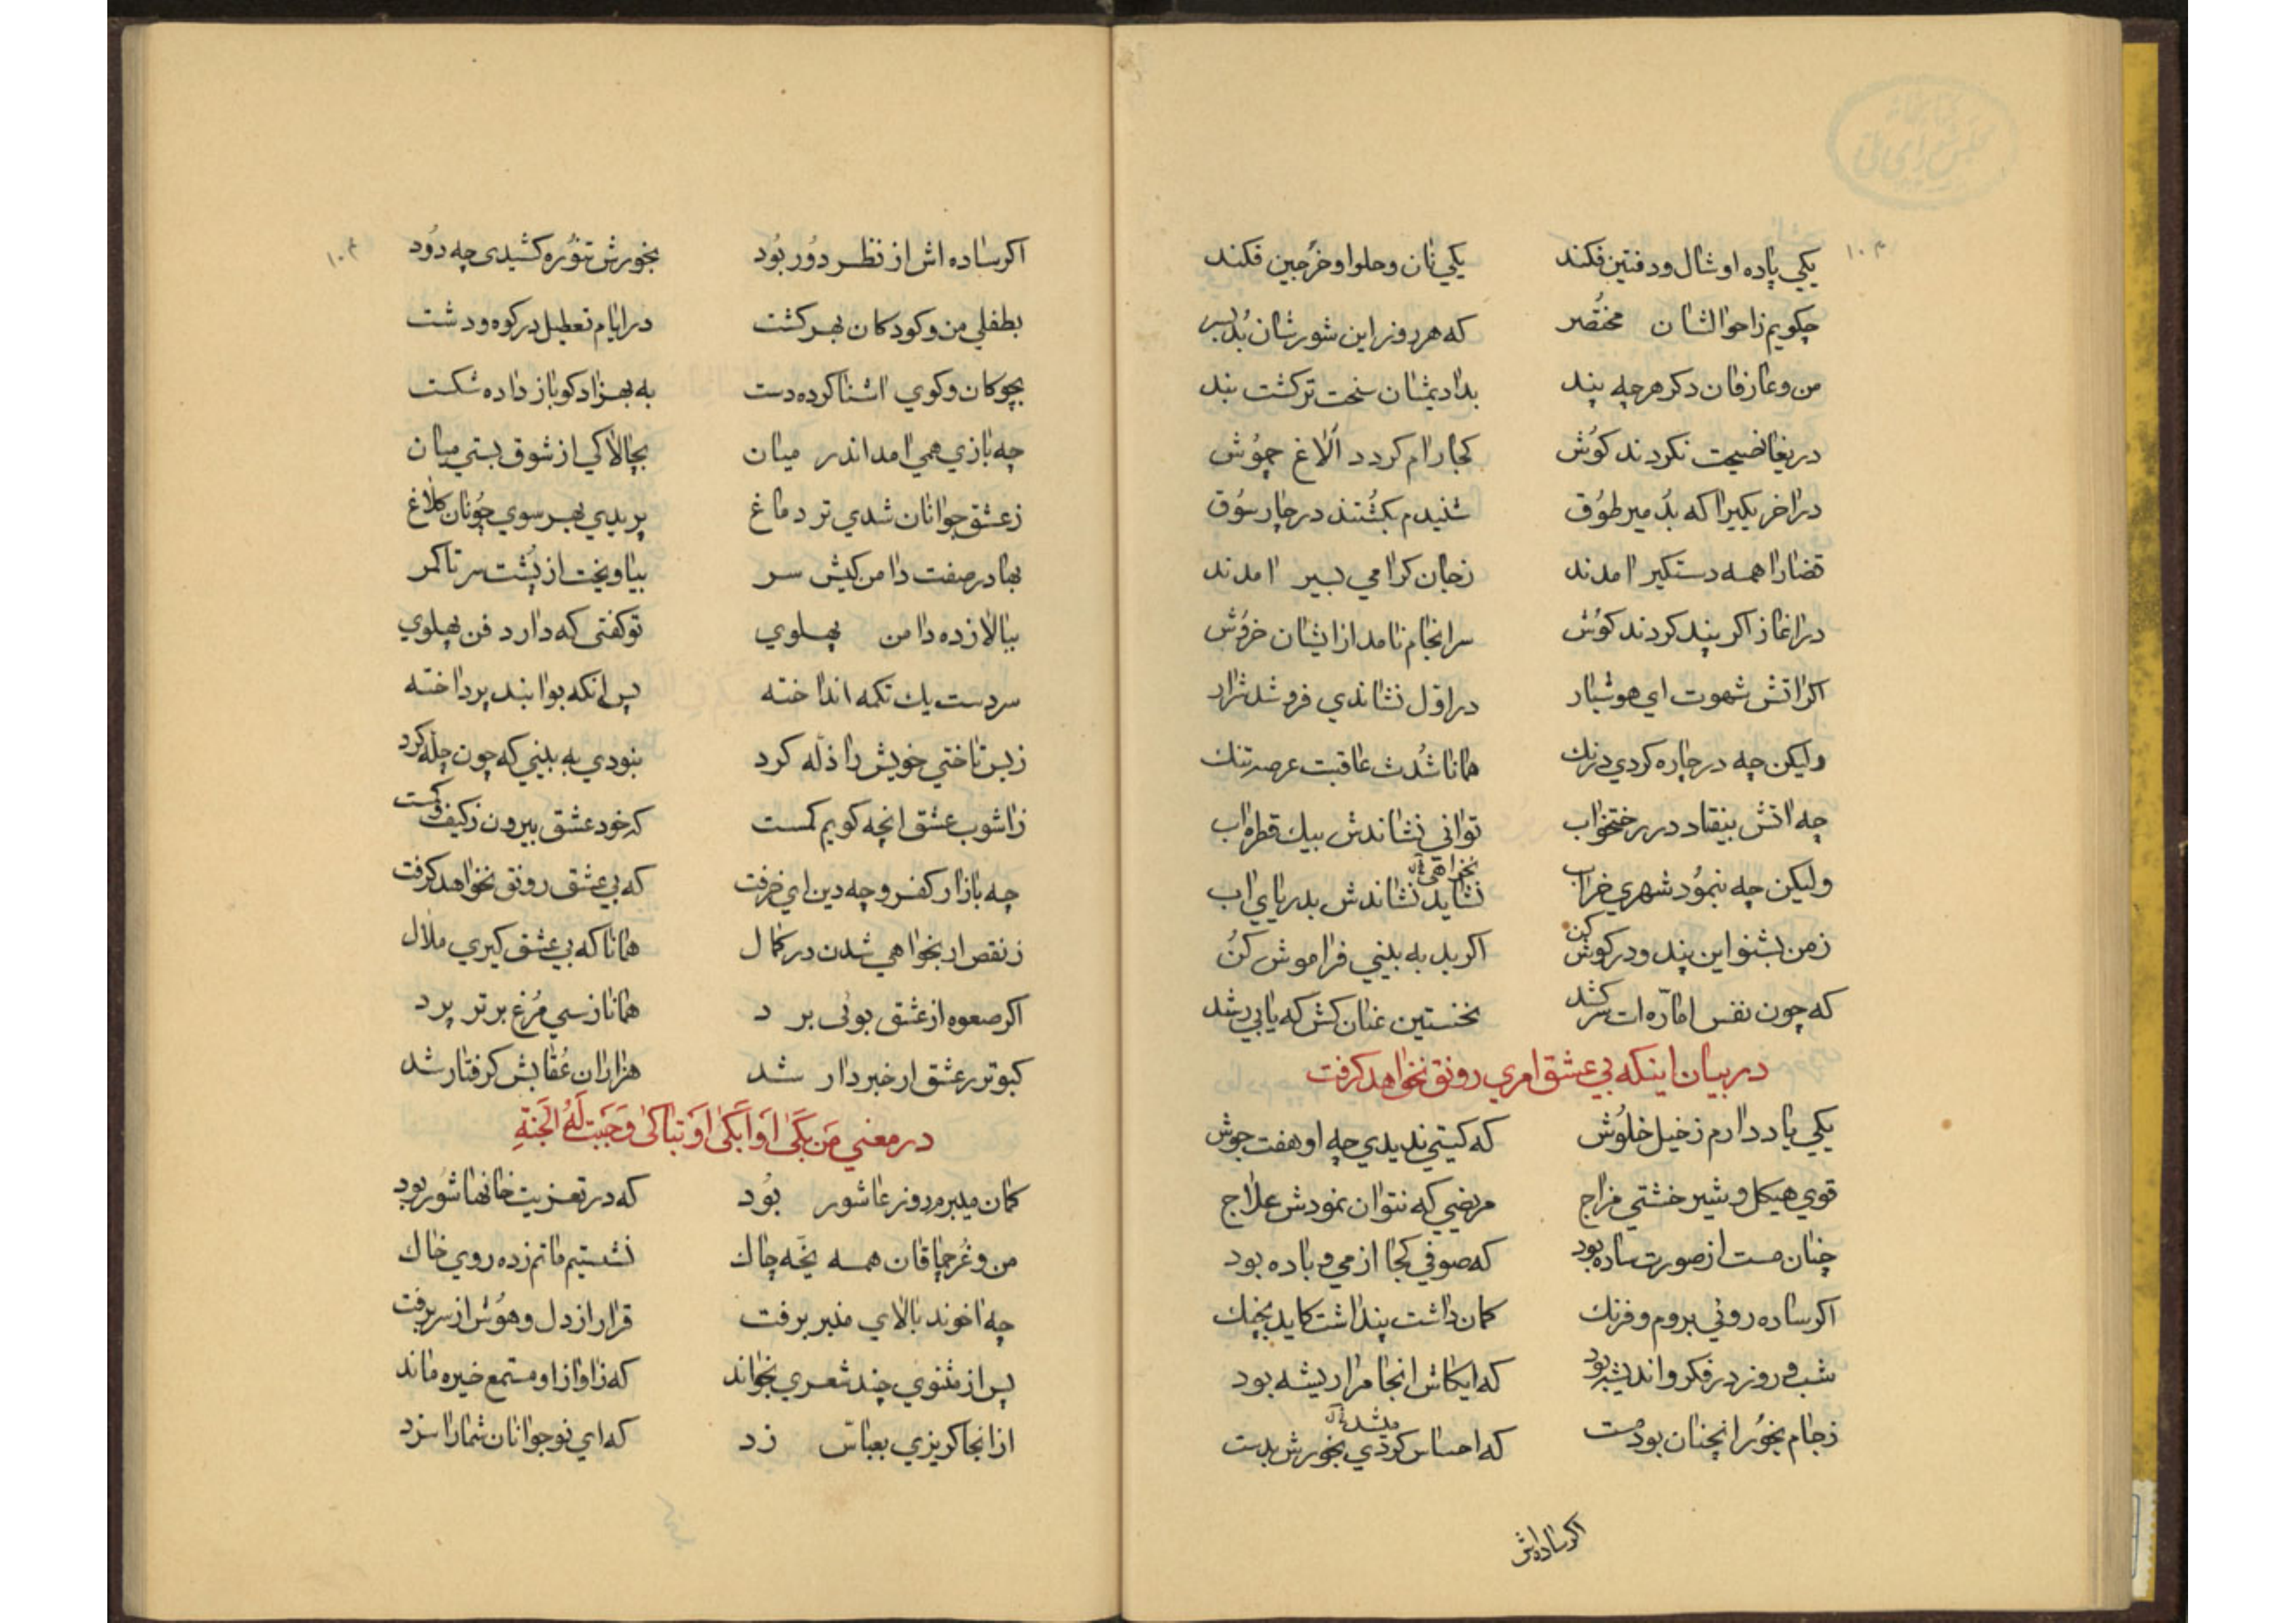 یکی پاده او شال و دفتین فکند یکی نان و حلوا و خرجین فکند
چکویم ز احوالشان مختصر که هر روز این شورشان بُد بسر
من و عارفان دکر هرچه پند بدادیمشان سخت ترکشت بند
دریغا نصیحت نکردند کوش کجا رام کردد الاغ چموش
در اخر یکیرا که بُد میر طوُق شنیدم بکشتند در چار سوُق
قضا را همه دستکیر امدند زجان کرامی بسیر امدند
در اغاز اکر پند کردند کوش سرانجام نامد از ایشان خروش
اکر اتش شهوت ای هوشیار در اوّل نشاندی فرو شد شرار
ولیکن چه در چاره کردی درنك همانا شُدت عاقبت عرصه تنك
چه اتش بیفتاد در رختخواب توانی نشاندش بیك قطره اب
نخواهی
ولیکن چه بنموُد شهری خراب نشاید نشاندش بدریای اب
زمن بشنو این پند و در کوش کن اکر بد به بینی فراموش کنُ
که چون نفس امّاره ات سر کشد نخستین عنان کش که یابی رشد
در بیان اینکه بی عشق امری رونق نخواهد کرفت
یکی یاد دارم ز خیل خلوُش که کیتی ندیدی چه او هفت جوش
قوی هیکل و شیر خشتی مزاج مرضی که نتوان نمودش علاج
چنان مست از صورت ساده بود که صوفی کجا از می و باده بود
اکر ساده روئی بروم و فرنك کمان داشت پنداشت کاید بچنك
شب و روز در فکر و اندیشه بود که ایکاش انجا مرا ریشه بود
میشد
زجام بخوُر انچنان بود مست که احساس کردی بخورش بدست
اکر ساده اش
اکر ساده اش از نظر دوُر بوُد بخورش تنوُره کشیدی چه دوُد
بطفلی من و کودکان بهر کشت در ایام تعطیل در کوه و دشت
بچوکان و کوی اشنا کرده دست به بهزاد کو باز داده شکست
چه بازی همی امد اندر میان بچالاکی از شوق بستی میان
زعشق جوانان شدی تر دماغ پریدی بهر سوی چوُنان کلاغ
بهادر صفت دامن کیش سر بیاویخت از پُشت سر تا کمر
ببالا زده دامن پهلوی تو کفتی که دارد فن پهلوی
سر دست یك تکمه انداخته پس انکه بوا بند پرداخته
زبس تاختی خویش را ذلّه کرد بنودی به بینی که چون چلّه کرد
زاشوب عشق انچه کویم کمست که خود عشق بیرون زکیف و کمست
چه بازار کفر و چه دین ای خرفت که بی عشق رونق نخواهد کرفت
زنقص ار بخواهی شدن در کمال همانا که بی عشق کیری ملال
اکر صعوه از عشق بوئی برد همانا زسی مُرغ برتر پرد
کبوتر زعشق ار خبردار شد هزاران عُقابش کرفتار شد
در معنی مَن بَکیٰ اَو اَبکیٰ اَو تَباکیٰ وَجَبَت لَهُ الجَنةِ
کمان میبرم روز عاشور بوُد که در تعزیت خانها شوُر بود
من و غُرچماقان همه یخّه چاك نشستیم ماتم زده روی خاك
چه اخوند بالای منبر برفت قرار از دل و هوُش از سر برفت
پس از مثنوی چند شعری بخواند که زاواز او مستمع خیره ماند
از انجا کریزی بعبّاس زد که ای نوجوانان شما را سزد